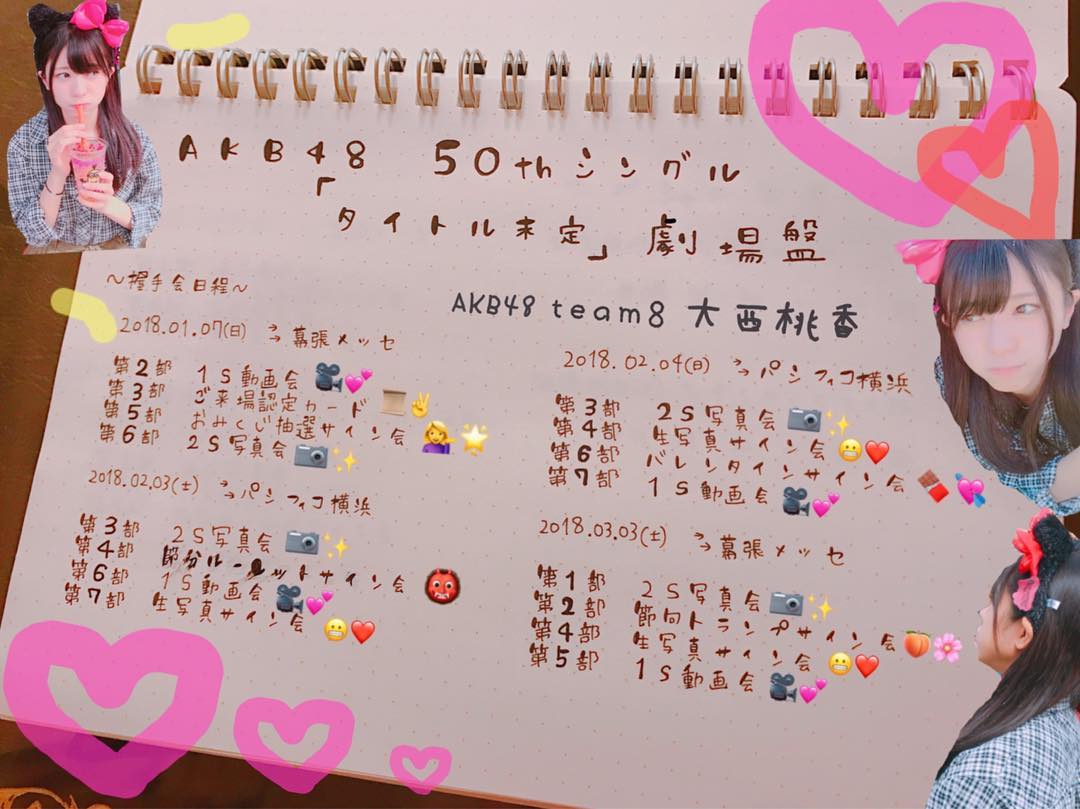 AKB48 50thシングル
「タイトル未定」劇場盤
〜握手会日程〜
AKB48 team8 大西桃香
2018.01.07(日) →→幕張メッセ
第2部 1S動画会
第3部 ご来場認定カード
第5部 おみくじ抽選サイン会
第6部 2S写真会
2018.02.03(土) →→パシフィコ横浜
第3部 2S写真会
第4部 節分ルーレットサイン会
第6部 1S動画会
第7部 生写真サイン会
2018.02.04(日) →→パシフィコ横浜
第3部 2S写真会
第4部 生写真サイン会
第6部 バレンタインサイン会
第7部 1S動画会
2018.03.03(土) →→幕張メッセ
第1部 2S写真会
第2部 節向トランプサイン会
第4部 生写真サイン会
第5部 1S動画会